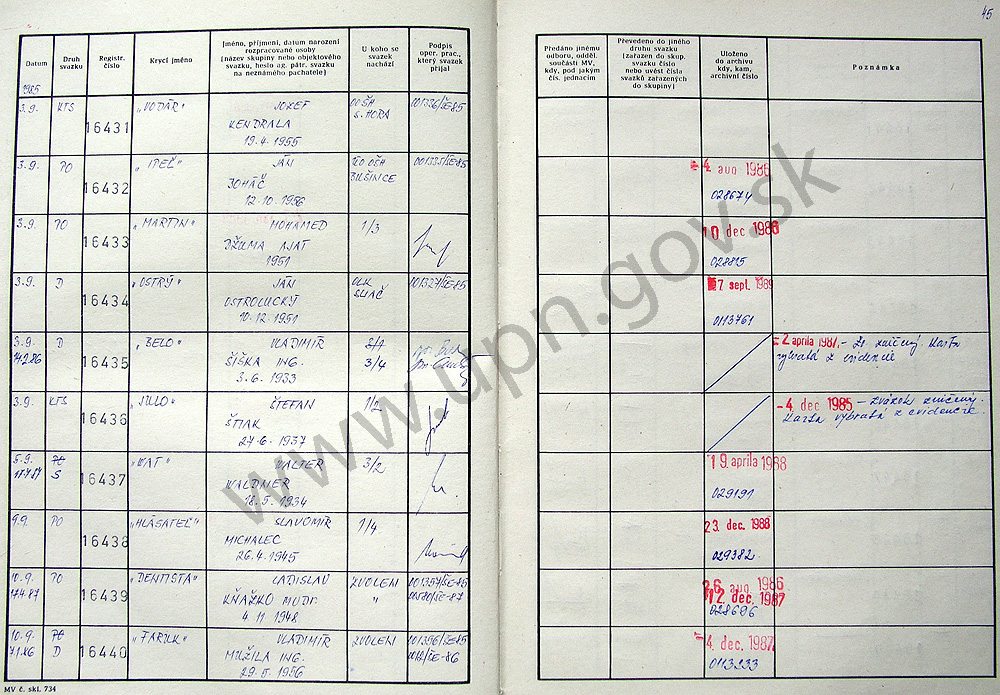 45
Datum
Druh svazku
Registr. číslo
Krycí jméno
Jméno, příjmení, datum narození
rozpracované osoby
(název skupiny nebo objektového
svazku, heslo ag. pátr. svazku
na neznámého pachatele)
U koho se
svazek
nachází
Podpis
oper. prac.,
který svazek
přijal
Předáno jinému
odboru, odděl.
součásti MV,
kdy, pod jakým
čís. jednacím
Převedeno do jiného
druhu svazku
(zařazen do skup.
svazku číslo
nebo uvést čísla
svazků zařazených
do skupiny)
Uloženo
do archivu
kdy, kam,
archivní číslo
Poznámka
1985
3.9. KTS 16431 „VODÁR" JOZEF
KENDRALA
19.4.1955
OO ŠH
S. HORA
001336/ŠE-85
3.9. PO 16432 „IPEĽ" JÁN
12.10.1956
001335/ŠE-85
4. aug 1986
028674
3.9. PO 16433 „MARTIN" MOHAMED
DŽUMA AJAT
1951
1/3
10 dec 1986
028815
3.9. D 16434 „OSTRÝ" JÁN
OSTROLUCKÝ
10.12.1951
SLIAČ
001327/ŠE-85
7 sept. 1989
0113761
3.9. D 16435 „BELO" VLADIMÍR
14.2.86 ŠIŠKA ING.
3.6.1933
3/4
2 apríla 1987. - Zv. zničený karta
vybratá z evidencie
3.9. KTS 16436 „JULO" ŠTEFAN
ŠTIAK
27.6.1937
1/2
- 4. dec 1985 - Zväzok zničený.
Karta vybratá z evidencie.
16437 „WAT" WALTER
S WALDNER
18.5.1934
3/2
19. apríla 1988
029191
9.9. PO 16438 „HLÁSATEĽ" SLAVOMÍR
MICHALEC
26.4.1945
1/4
23. dec. 1988
029382
10.9. PO 16439 „DENTISTA" LADISLAV
17.4.87 KŇAŽKO MUDr.
4.11.1948
ZVOLEN
"
001357/ŠE-85
26 aug 1986
12. dec. 1987
028696
10.9. 16440 „FARUK" VLADIMÍR
D MUŽILA ING.
1956
ZVOLEN
001356/ŠE-85
4. dec. 1987
0113233
MV č. skl. 734
www.upn.gov.sk